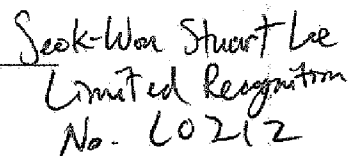 Seok-Won Stuart Lee
Limited Recognition
No. L0212